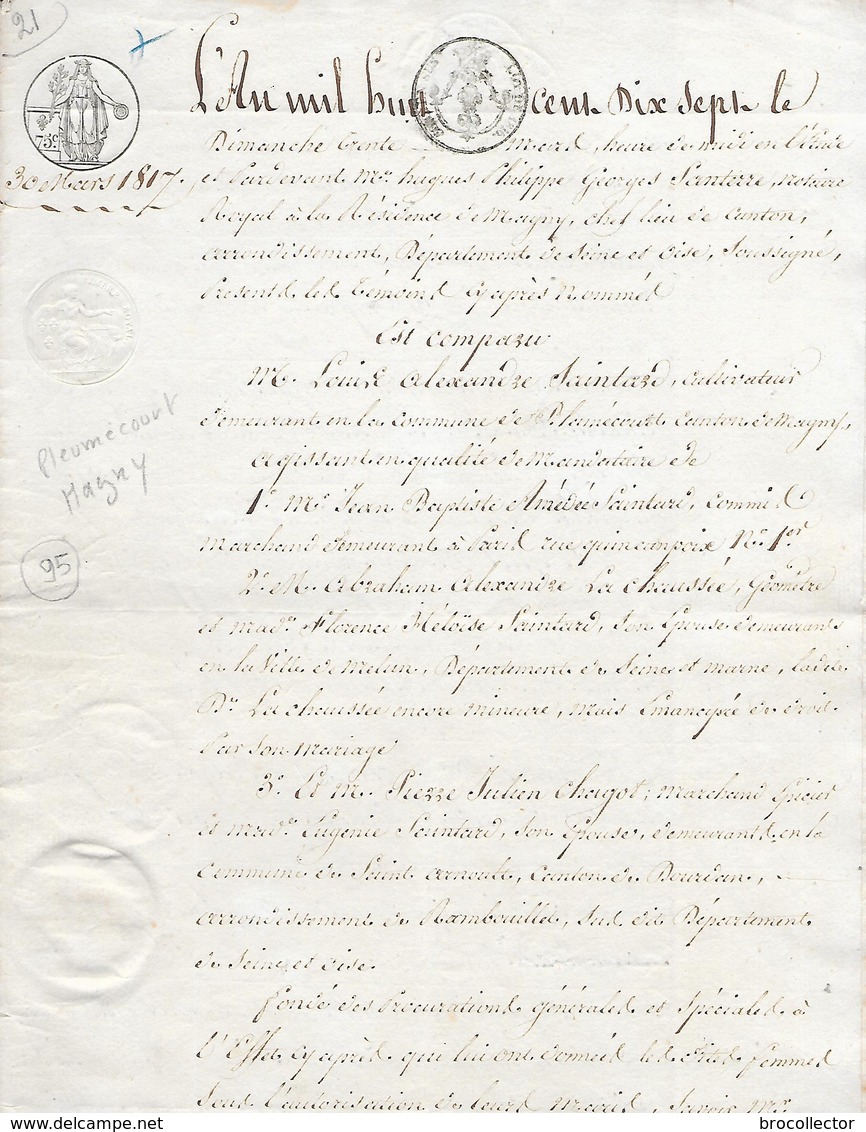 21
L'An mil huit cent Dix Sept le
75c
30 Mars 1817.
Dimanche trente Mars, heure de midi en l'Etude
et Pardevant Me hugues Philippe Georges Santerre, notaire
Royal à la Résidence de Magny, chef lieu de Canton,
arrondissement, Département de Seine et Oise, Soussigné,
Présents les Témoins cy après Nommés
Est comparu
M. Louis Alexandre Saintard, cultivateur
demeurant en la commune de Blamécourt Canton de Magny,
agissant en qualité de Mandataire de
Pleumecourt
Magny
1o Mr Jean Baptiste Amédée Saintard, commis
Marchand demeurant à Paris rue quincanpoix No 1er
95
2o M. Abraham Alexandre La chaussée, Géomètre
et made Florence Héloïse Saintard, Son Epouse demeurants
en la Ville de Melun, Département de Seine et marne, ladite
De La chaussée encore mineure, mais Emancipée de droit
Par Son mariage
3o Et M. Pierre Julien Chagot, marchand Epicier
et made Eugenie Saintard, Son Epouse, demeurants en la
Commune de Saint Arnoult, Canton de Dourdan,
arrondissement de Rambouillet, Sus dit Département
de Seine et Oise.
fondé des Procurations générales et Spéciales à
l'Effet cy après qui lui ont données les dites femmes
Sous l'autorisation de leurs Maris, Savoir Mr
brocollector